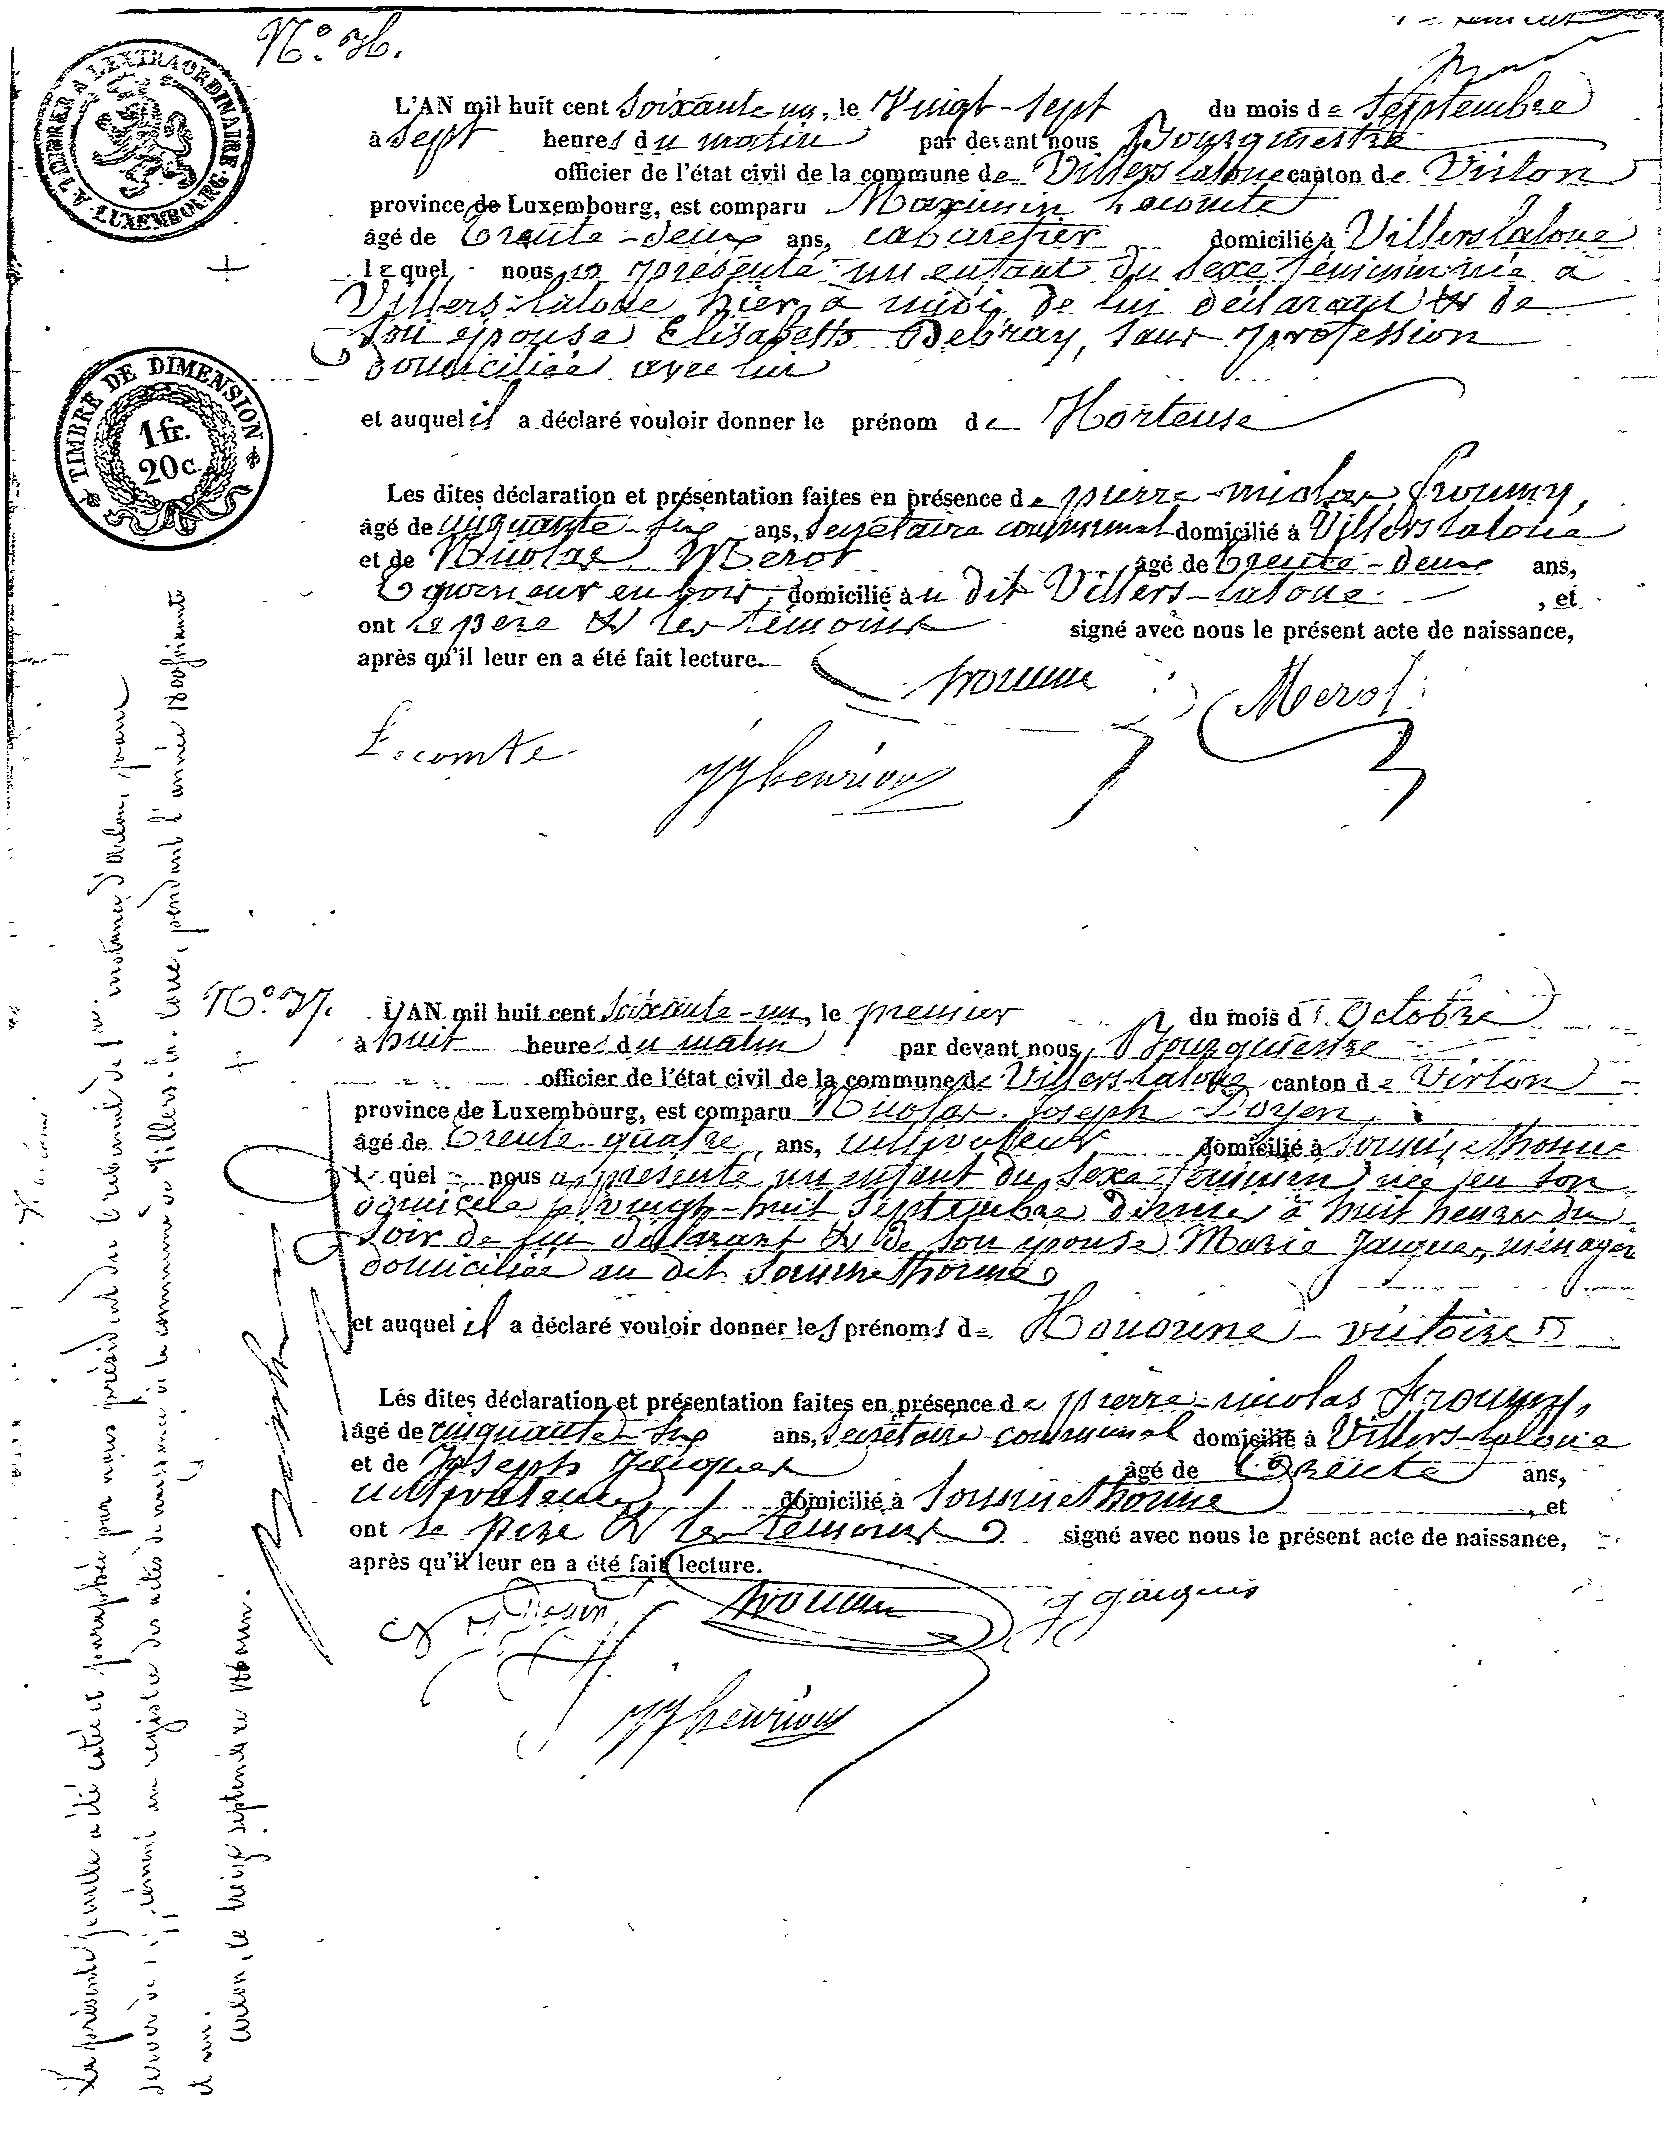 N.o 36.
A TIMBRER A L'EXTRAORDINAIRE
LUXEMBOURG
TIMBRE DE DIMENSION
1 fr.
20 c.
L'AN mil huit cent soixante un, le vingt-sept du mois de septembre
à sept heures du matin par devant nous Bourgmestre
officier de l'état civil de la commune de Villers-la loue canton de Virton
province de Luxembourg, est comparu Maximin Lecomte
âgé de trente-deux ans, cabaretier domicilié à Villers la loue
lequel nous a présenté un enfant du sexe féminin née à
Villers-la loue hier à midi, de lui déclarant & de
son épouse Elisabeth Debray, sans profession
domiciliée avec lui
et auquel il a déclaré vouloir donner le prénom de Hortense
Les dites déclaration et présentation faites en présence de pierre-nicolas froumy,
âgé de cinquante-six ans, secrétaire communal domicilié à Villers la loue
et de Nicolas Merot âgé de trente-deux ans,
domicilié au dit Villers-la loue , et
ont le père & les témoins signé avec nous le présent acte de naissance,
après qu'il leur en a été fait lecture.
froumy
Merot
Lecomte
JJ henrion
N.o 37.
L'AN mil huit cent soixante-un, le premier du mois d'Octobre
à huit heures du matin par devant nous, Bourgmestre
officier de l'état civil de la commune de Villers-la loue canton de Virton
province de Luxembourg, est comparu Nicolas Joseph Doyen,
âgé de trente quatre ans, cultivateur domicilié à Sommethonne
lequel nous a présenté un enfant du sexe féminin née en son
domicile le vingt-huit septembre dernier à huit heures du
soir de lui déclarant & de son épouse Marie Jacques, ménagère
domiciliée au dit Sommethonne
et auquel il a déclaré vouloir donner les prénoms de Honorine-victoire
Les dites déclaration et présentation faites en présence de pierre-nicolas froumy,
âgé de cinquante-six ans, secrétaire communal domicilié à Villers-la loue
et de Joseph Jacques âgé de trente ans,
cultivateur domicilié à Sommethonne , et
ont le père & les témoins signé avec nous le présent acte de naissance,
après qu'il leur en a été fait lecture.
Doyen
froumy
J Jacques
JJ henrion
La présente feuille a été cotée et paraphée par nous président du tribunal de 1ère instance d'arlon, pour
servir de supplément au registre des actes de naissance de la commune de Villers-la-loue, pendant l'année 1800 soixante
et un.
arlon, le treize septembre 1800 un.